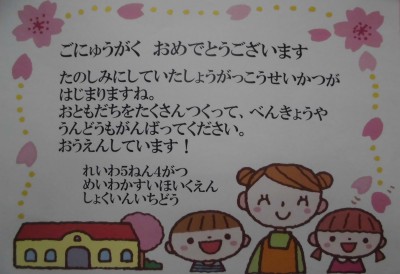 ごにゅうがく おめでとうございます
たのしみにしていたしょうがっこうせいかつが
はじまりますね。
おともだちをたくさんつくって、べんきょうや
うんどうもがんばってください。
おうえんしています！
れいわ5ねん4がつ
めいわかすいほいくえん
しょくいんいちどう